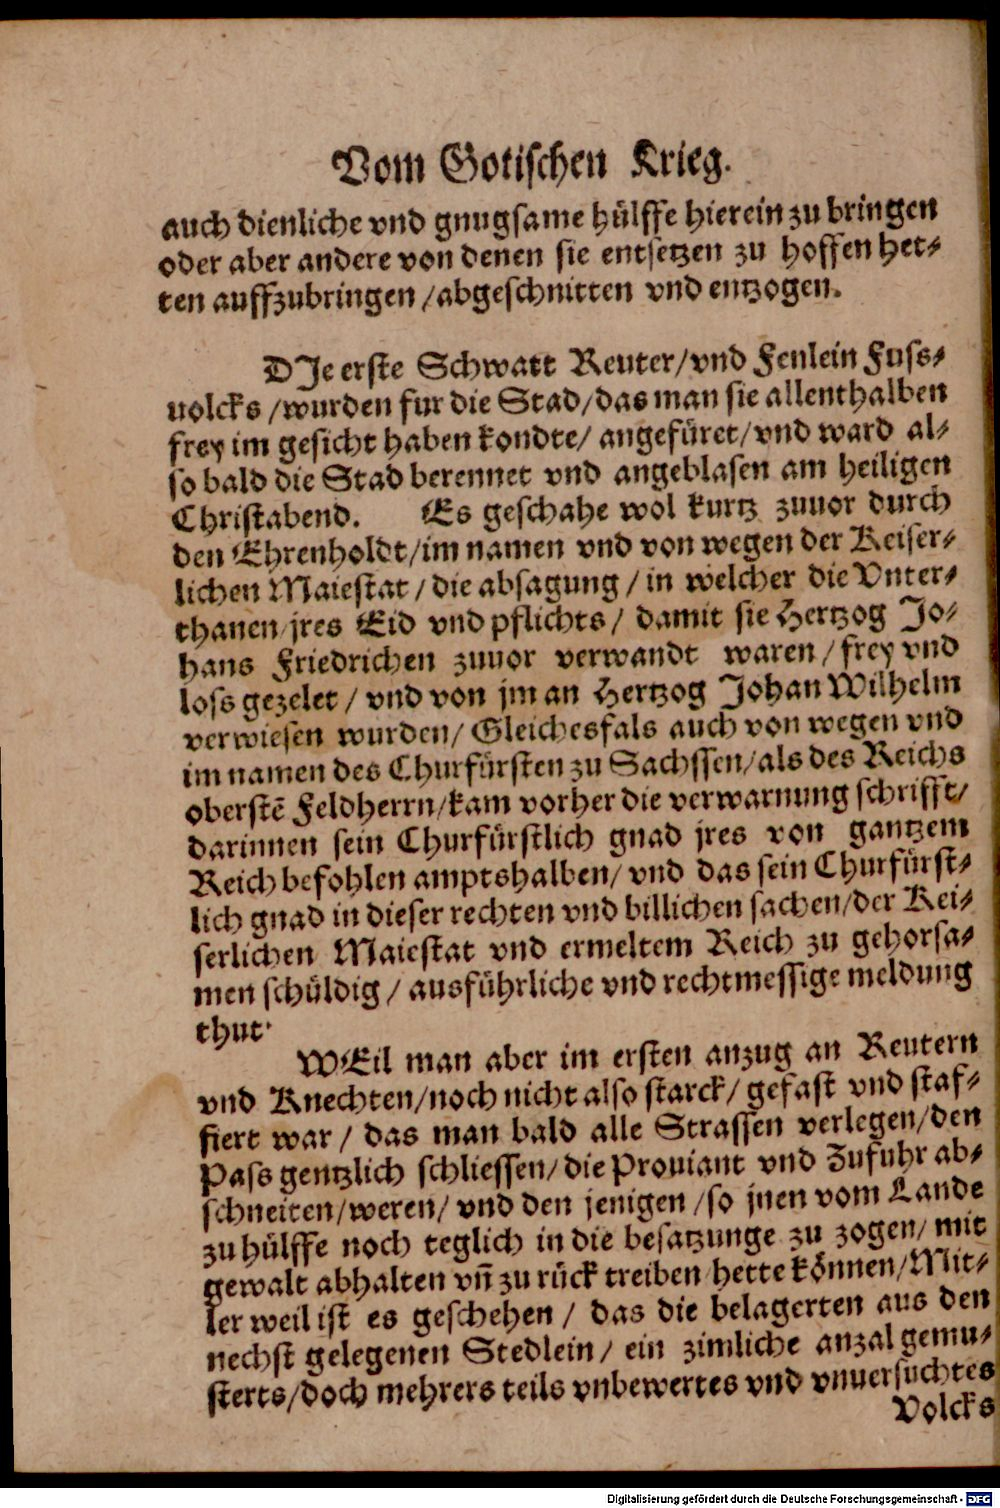 Vom Gotischen Krieg.
auch dienliche vnd gnugsame hülffe hierein zu bringen
oder aber andere von denen sie entsetzen zu hoffen het-
ten auffzubringen / abgeschnitten vnd entzogen.
DJe erste Schwatt Reuter / vnd Fenlein Fuss-
uolcks / wurden fur die Stad / das man sie allenthalben
frey im gesicht haben kondte / angefüret / vnd ward al-
so bald die Stad berennet vnd angeblasen am heiligen
Christabend. Es geschahe wol kurtz zuuor durch
den Ehrenholdt / im namen vnd von wegen der Keiser-
lichen Maiestat / die absagung / in welcher die Vnter-
thanen jres Eid vnd pflichts / damit sie Hertzog Jo-
hans Friedrichen zuuor verwandt waren / frey vnd
loss gezelet / vnd von jm an Hertzog Johan Wilhelm
verwiesen wurden / Gleichesfals auch von wegen vnd
im namen des Churfürsten zu Sachssen / als des Reichs
oberstē Feldherrn / kam vorher die verwarnung schrifft /
darinnen sein Churfürstlich gnad jres von gantzem
Reich befohlen amptshalben / vnd das sein Churfürst-
lich gnad in dieser rechten vnd billichen sachen / der Kei-
serlichen Maiestat vnd ermeltem Reich zu gehorsa-
men schüldig / ausführliche vnd rechtmessige meldung
thut.
WEil man aber im ersten anzug an Reutern
vnd Knechten / noch nicht also starck / gefast vnd staf-
fiert war / das man bald alle Strassen verlegen / den
Pass gentzlich schliessen / die Prouiant vnd Zufuhr ab-
schneiten / weren / vnd den jenigen / so jnen vom Lande
zu hülffe noch teglich in die besatzunge zu zogen / mit
gewalt abhalten vn̄ zu rück treiben hette können / Mit-
ler weil ist es geschehen / das die belagerten aus den
nechst gelegenen Stedlein / ein zimliche anzal gemu-
sterts / doch mehrers teils vnbewertes vnd vnuersuchtes
Volcks
Digitalisierung gefördert durch die Deutsche Forschungsgemeinschaft - DFG